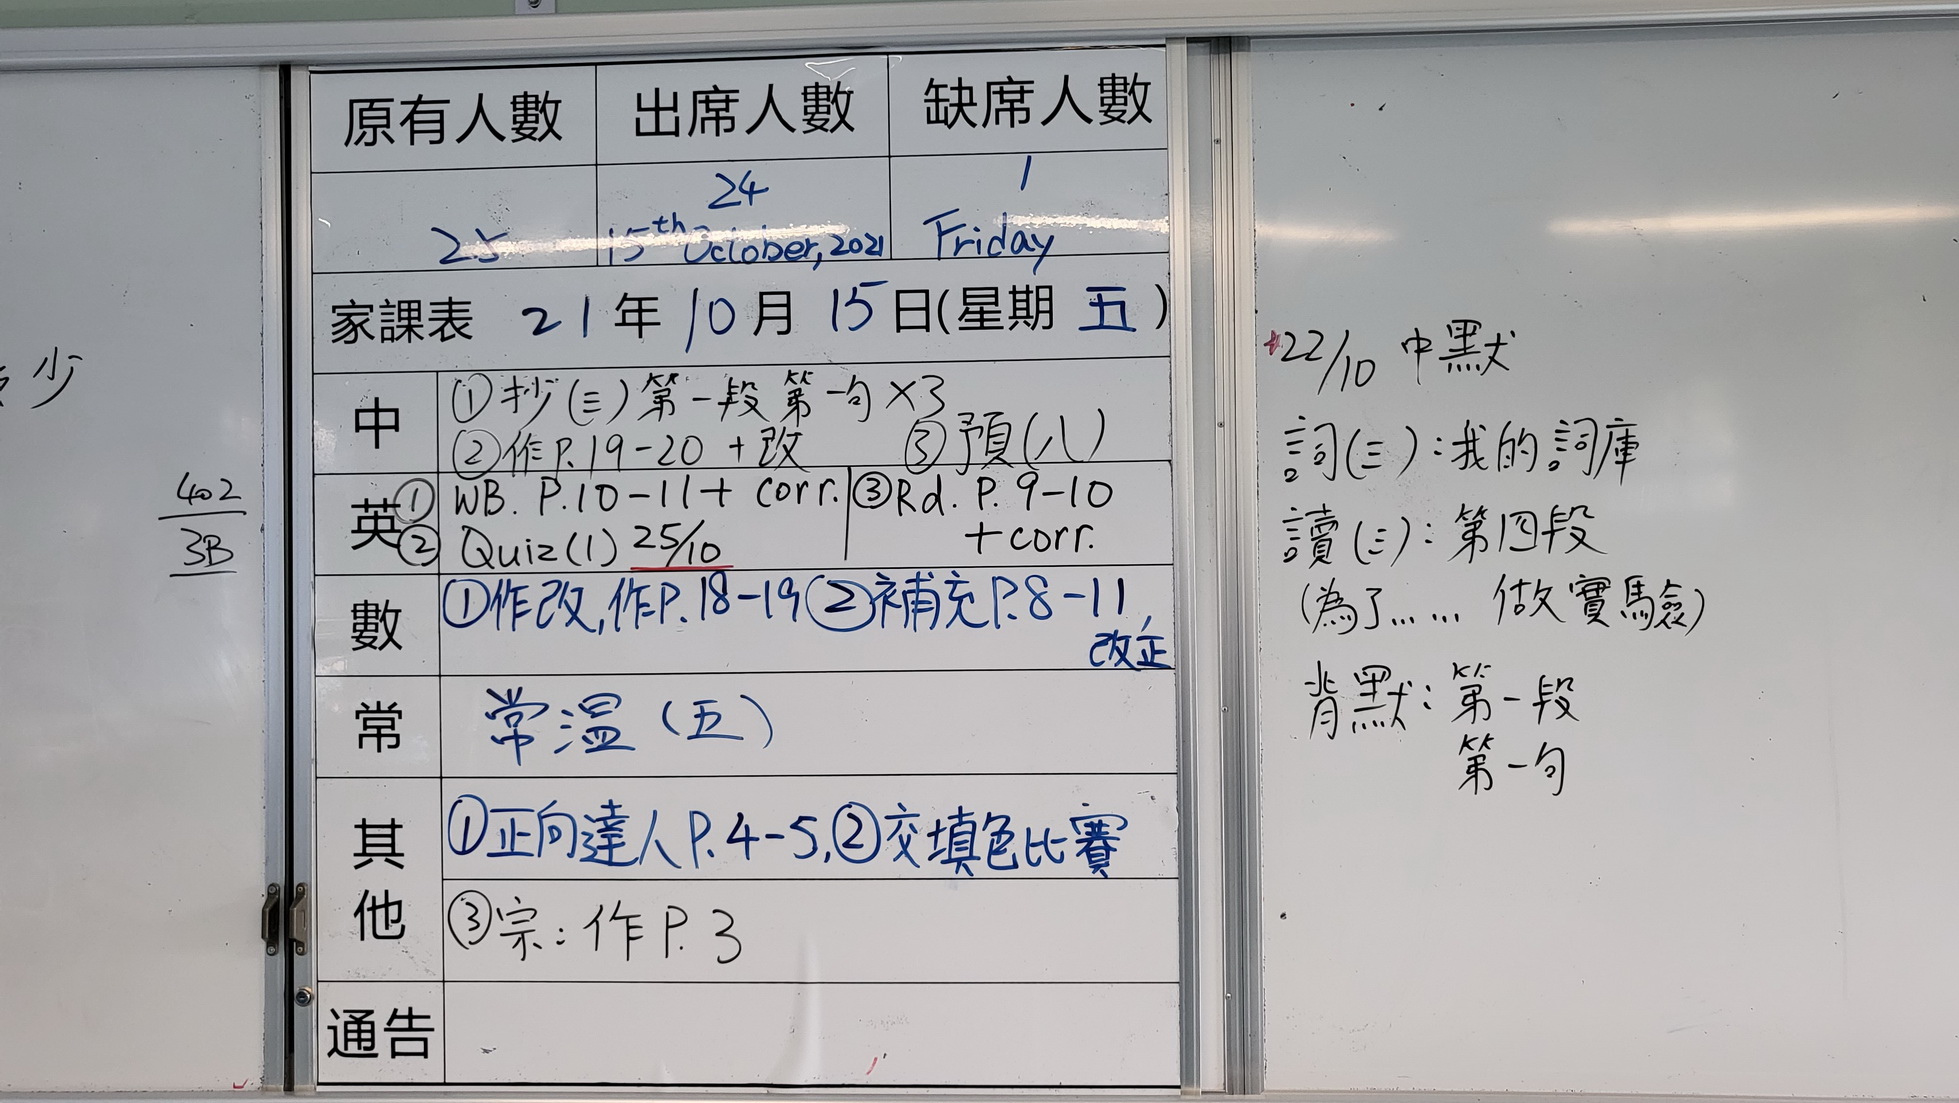 少
402
3B
原有人數 出席人數 缺席人數
25 24 1
15th October, 2021 Friday
家課表 21年10月15日(星期五)
中 ①抄(三)第一段第一句×3
②作P.19-20+改 ③預(八)
英 ①WB. P.10-11+ corr. ③Rd. P. 9-10
②Quiz(1) 25/10 +corr.
數 ①作改,作P.18-19②補充P.8-11,
改正
常 常溫(五)
其他 ①正向達人P.4-5,②交填色比賽
③宗:作P.3
通告
*22/10 中默
詞(三):我的詞庫
讀(三):第四段
(為了…… 做實驗)
背默:第一段
第一句